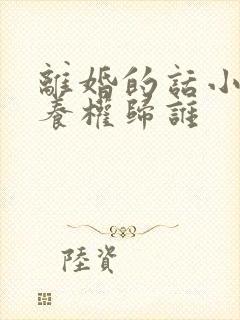 離婚的話小
養權歸誰
陸資